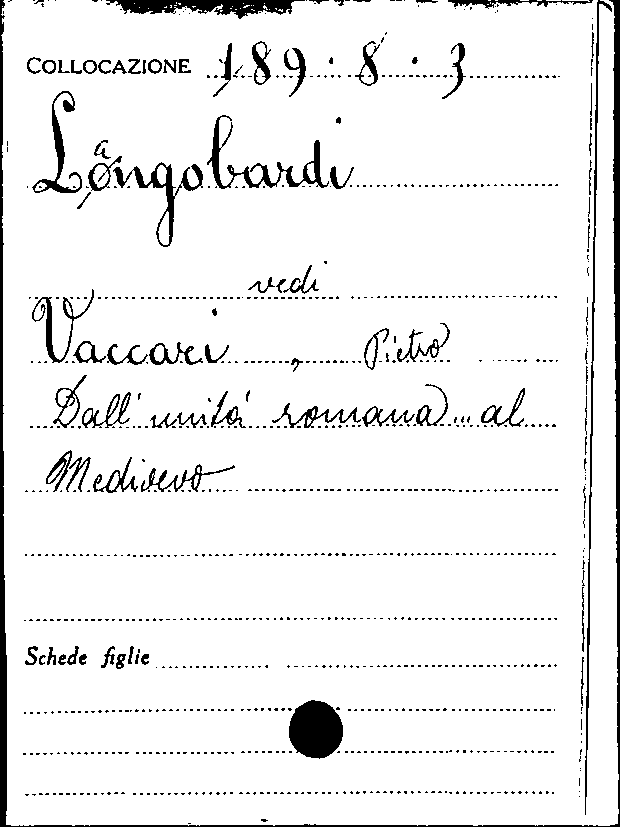 COLLOCAZIONE 189.8.3
Langobardi
vedi
Vaccari, Pietro
Dall'unità romana... al
Medioevo
Schede figlie